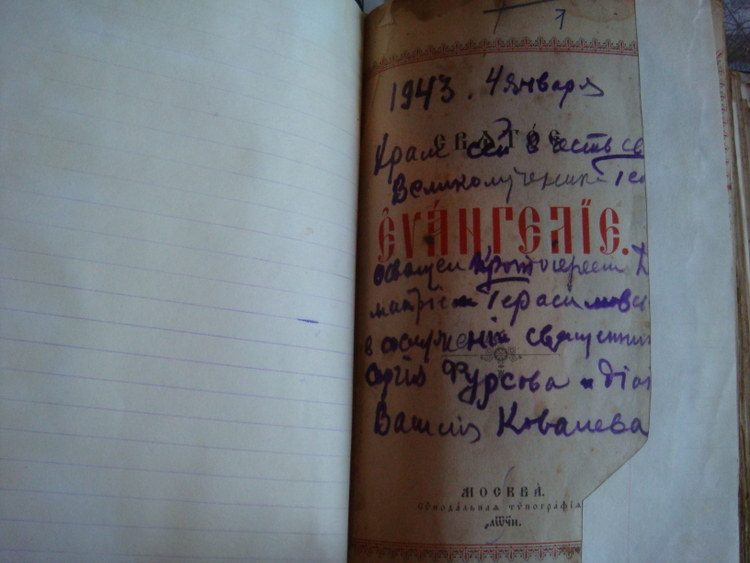 1
1943. 4 января
СВѦТО́Е
Храм сей в честь св
Великомученика Ге
ЕѴА́НГЕЛЇЕ.
освящен протоиереем Д
митрием Герасимов
в сослужении священни
Сергия Фурсова и діа
Василия Ковалева
МОСКВА̀.
Сѷнода́льная тѷпогра́фїѧ